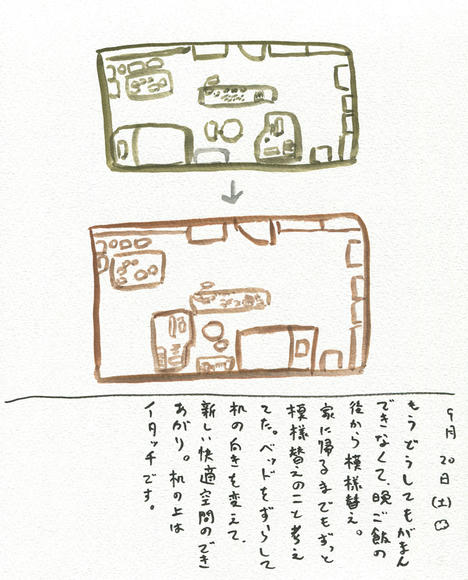 9月20日(土)
もうどうしてもがまん
できなくて、晩ご飯の
後から模様替え。
家に帰るまでもずっと
模様替えのこと考え
てた。ベッドをずらして
机の向きを変えて、
新しい快適空間のでき
あがり。机の上は
イタッチです。